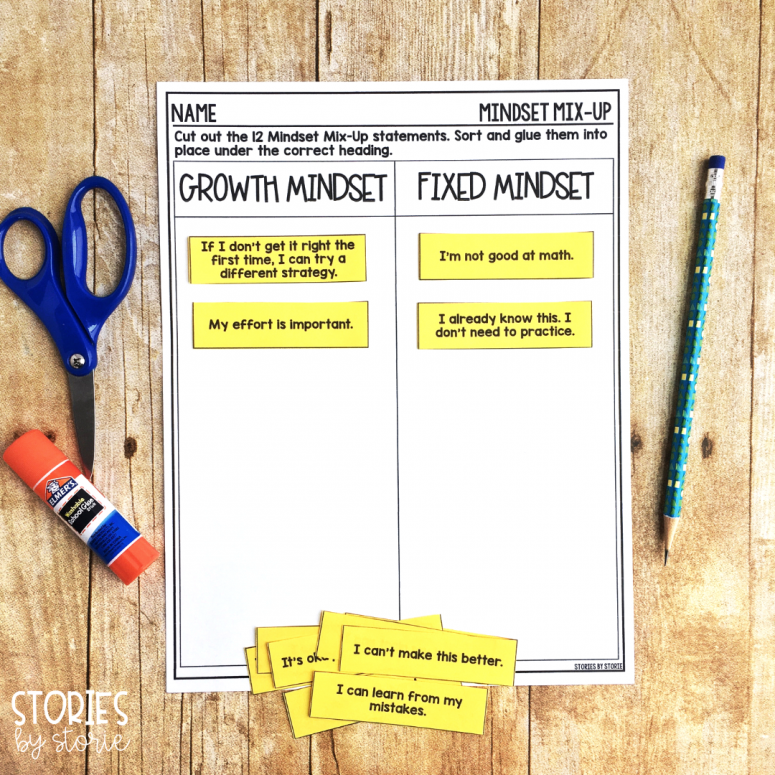 NAME
MINDSET MIX-UP
Cut out the 12 Mindset Mix-Up statements. Sort and glue them into
place under the correct heading.
GROWTH MINDSET
FIXED MINDSET
If I don't get it right the
first time, I can try a
different strategy.
I'm not good at math.
My effort is important.
I already know this. I
don't need to practice.
It's
I can't make this better.
I can learn from my
mistakes.
STORIES BY STORIE
ELMER'S
Washable
School Glue
Stick
STORIES
by storie